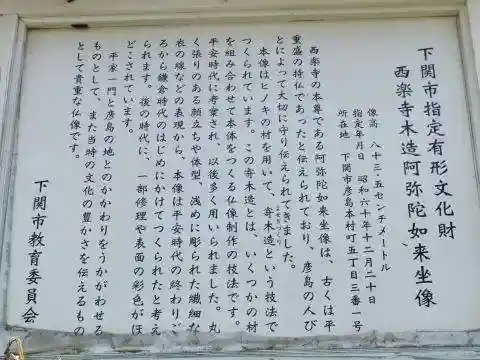 下関市指定有形文化財
西楽寺木造阿弥陀如来坐像
像高 八十三・五センチメートル
指定年月日 昭和六十年十二月二十日
所在地 下関市彦島本村町五丁目三番一号
西楽寺の本尊である阿弥陀如来坐像は、古くは平
重盛の持仏であったと伝えられており、彦島の人び
とによって大切に守り伝えられてきました。
本像はヒノキの材を用いて、寄木造という技法で
つくられています。この寄木造とは、いくつかの材
を組み合わせて本体をつくる仏像制作の技法です。
平安時代に考案され、以後多く用いられました。丸
く張りのある顔立ちや体型、浅めに彫られた繊細な
衣の線などの表現から、本像は平安時代の終わりご
ろから鎌倉時代のはじめにかけてつくられたと考え
られます。後の時代に、一部修理や表面の彩色がほ
どこされています。
平家一門と彦島の地とのかかわりをうかがわせる
ものとして、また当時の文化の豊かさを伝えるもの
として貴重な仏像です。
下関市教育委員会